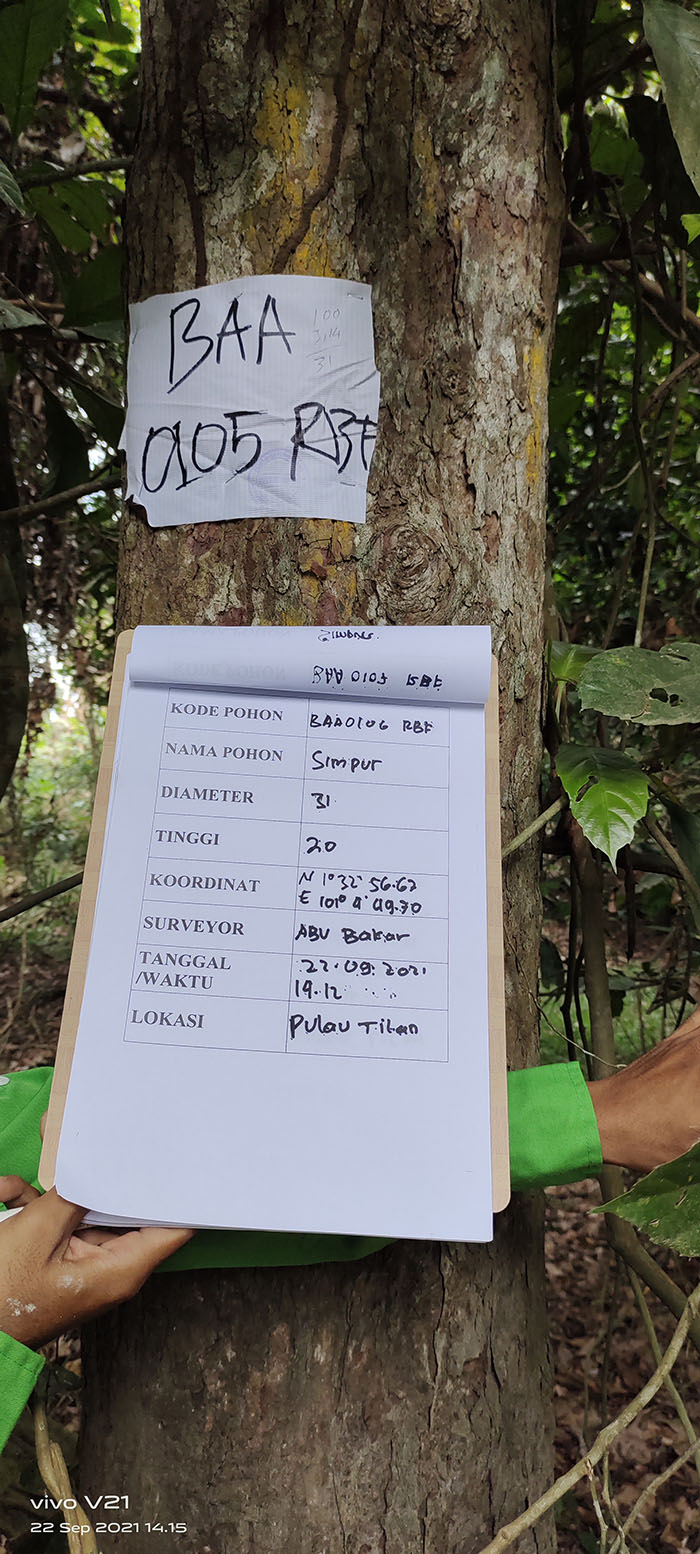 BAA
100
3,14
31
0105 RBF
BAA 0105 RBF
KODE POHON BAA0106 RBF
NAMA POHON Simpur
DIAMETER 31
TINGGI 20
KOORDINAT N 1° 32' 56.62
E 101° 4' 49.70
SURVEYOR ABU Bakar
TANGGAL 22.09.2021
/WAKTU 14.12
LOKASI Pulau Tilan
vivo V21
22 Sep 2021 14.15